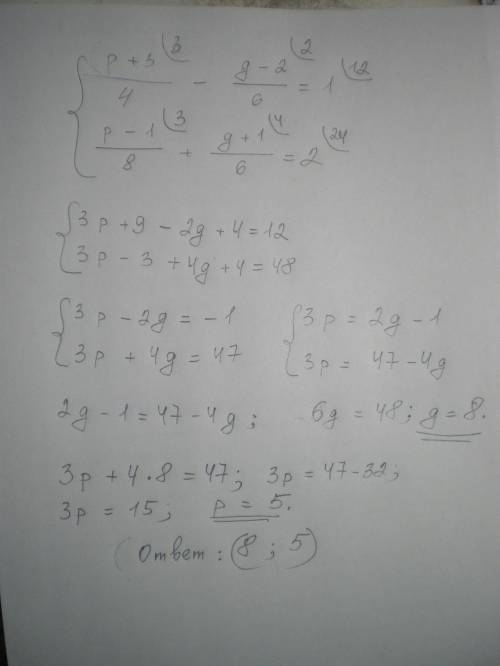 { (p + 3)/4 ⌊3 − (g − 2)/6 ⌊2 = 1 ⌊12
(p − 1)/8 ⌊3 + (g + 1)/6 ⌊4 = 2 ⌊24
{ 3p + 9 − 2g + 4 = 12
3p − 3 + 4g + 4 = 48
{ 3p − 2g = −1 { 3p = 2g − 1
3p + 4g = 47 3p = 47 − 4g
2g − 1 = 47 − 4g; 6g = 48; g = 8.
3p + 4 · 8 = 47; 3p = 47 − 32;
3p = 15; p = 5.
Ответ: (8 ; 5)